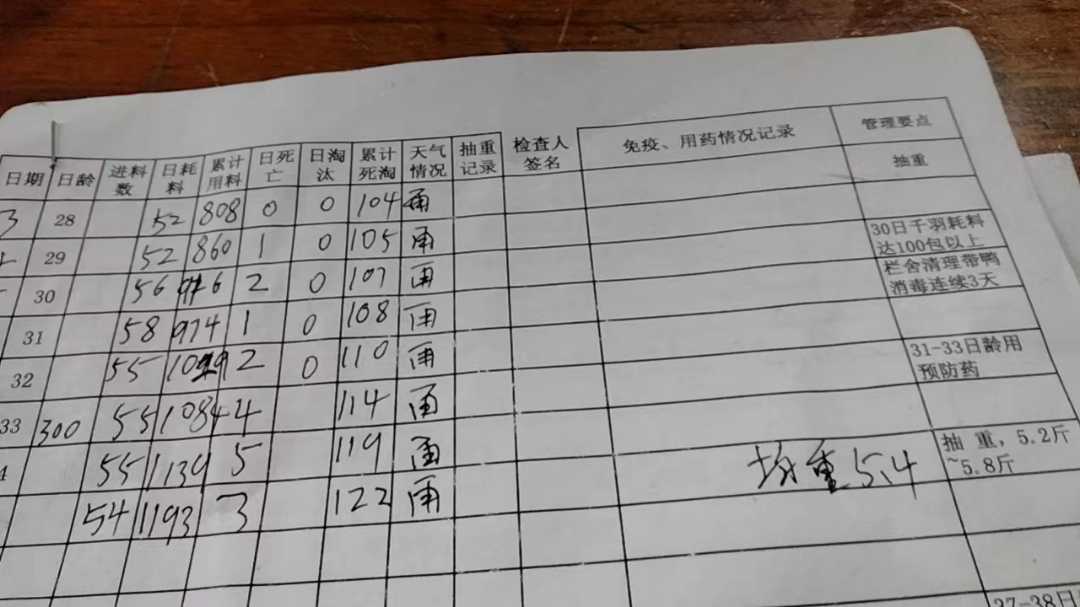 日期 日龄 进料数 日耗料 累计用料 日死亡 日淘汰 累计死淘 天气情况 抽重记录 检查人签名 免疫、用药情况记录 管理要点
抽重
3 28 52 808 0 0 104 雨
29 52 860 1 0 105 雨 30日千羽耗料达100包以上
30 56 916 2 0 107 雨 栏舍清理带鸭消毒连续3天
31 58 974 1 0 108 雨
32 55 1029 2 0 110 雨 31-33日龄用预防药
33 300 55 1084 4 114 雨
4 55 1139 5 119 雨 均重5.4 抽重，5.2斤~5.8斤
54 1193 3 122 雨
37-38日